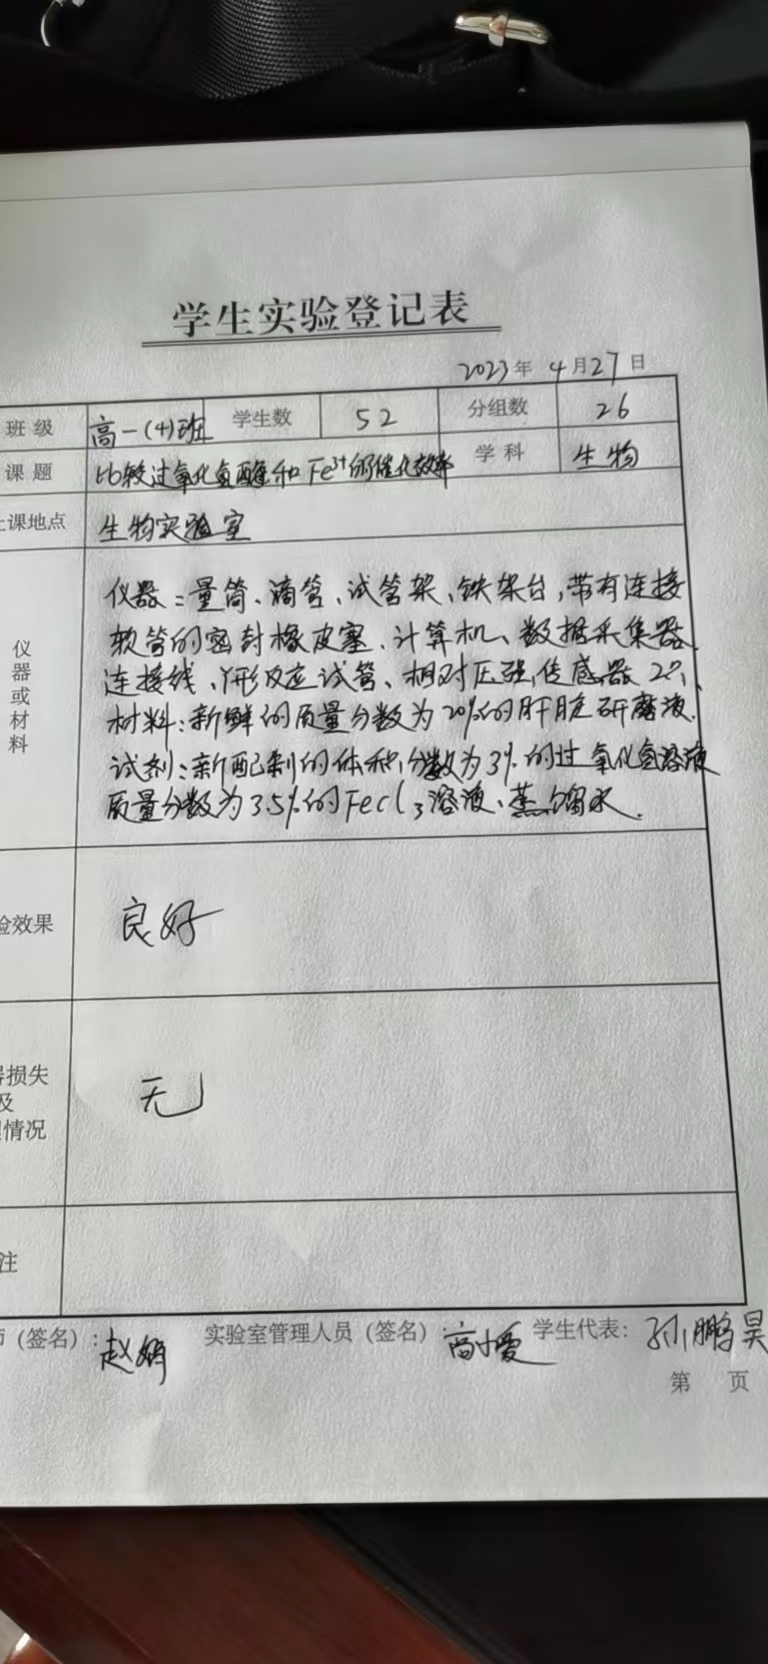 学生实验登记表
2023年 4月27日
班级 高一(4)班 学生数 52 分组数 26
课题 比较过氧化氢酶和Fe³⁺的催化效率 学科 生物
上课地点 生物实验室
仪器或材料
仪器：量筒、滴管、试管架、铁架台，带有连接
软管的密封橡皮塞、计算机、数据采集器
连接线、Y形反应试管、相对压强传感器2个、
材料：新鲜的质量分数为20%的肝脏研磨液.
试剂：新配制的体积分数为3%的过氧化氢溶液
质量分数为3.5%的FeCl₃溶液、蒸馏水.
验效果 良好
损失
及 无
情况
注
(签名)：赵娟 实验室管理人员(签名)：高小爱 学生代表：孙鹏昊
第 页